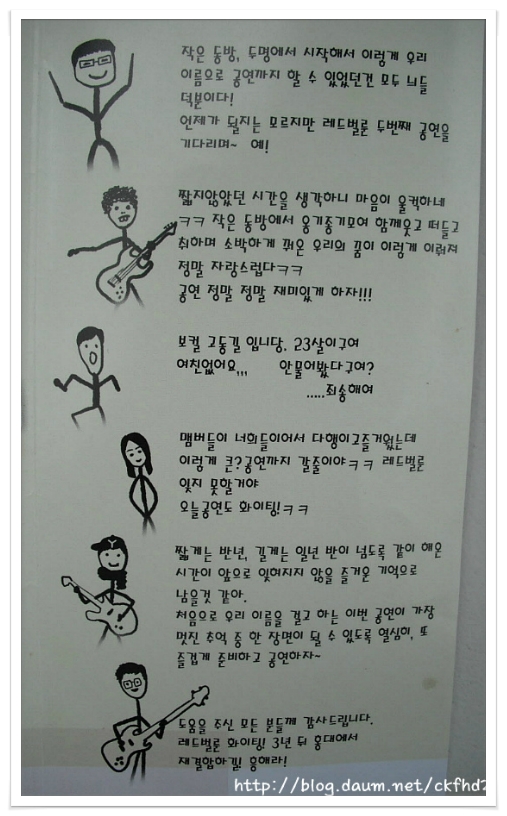 작은 동방, 두명에서 시작해서 이렇게 우리
이름으로 공연까지 할 수 있었던건 모두 늬들
덕분이다!
언제가 될지는 모르지만 레드벌룬 두번째 공연을
기다리며~ 예!
짧지않았던 시간을 생각하니 마음이 울컥하네
ㅋㅋ 작은 동방에서 옹기종기모여 함께웃고 떠들고
취하며 소박하게 꿔온 우리의 꿈이 이렇게 이뤄져
정말 자랑스럽다ㅋㅋ
공연 정말 정말 재미있게 하자!!!
보컬 고동길 입니당. 23살이구여
여친없어요,,, 안물어봤다구여?
.....죄송해여
맴버들이 너희들이어서 다행이고즐거웠는데
이렇게 큰?공연까지 갈줄이야ㅋㅋ 레드벌룬
잊지 못할거야
오늘공연도 화이팅!ㅋㅋ
짧게는 반년, 길게는 일년 반이 넘도록 같이 해온
시간이 앞으로 잊혀지지 않을 즐거운 기억으로
남을것 같아.
처음으로 우리 이름을 걸고 하는 이번 공연이 가장
멋진 추억 중 한 장면이 될 수 있도록 열심히, 또
즐겁게 준비하고 공연하자~
도움을 주신 모든 분들께 감사드립니다.
레드벌룬 화이팅! 3년 뒤 홍대에서
재결합하길! 흥해라!
http://blog.daum.net/ckfhd2